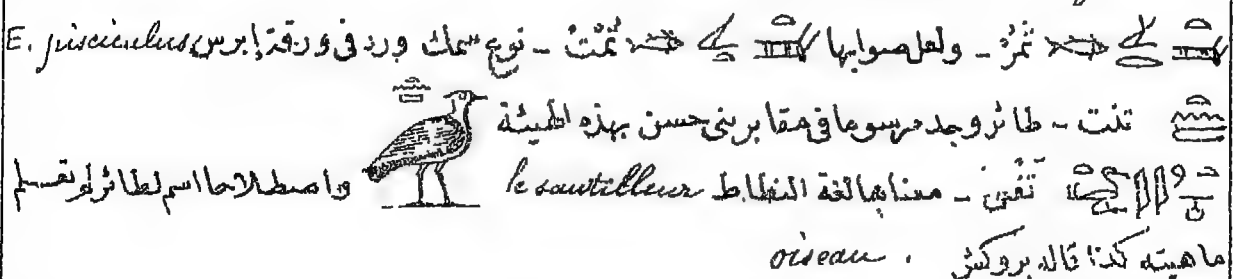 ثمر - ولعل صوابها تمت - نوع سمك ورد فى ورقة إبرس E. pisciculus
تنت - طائر وجد مرسوما فى مقابر بنى حسن بهذه الهيئة
تفنن - معناها لغة النطاط le sautilleur واصطلاحا اسم لطائر لم تعلم
ماهيته كذا قاله بروكش . oiseau